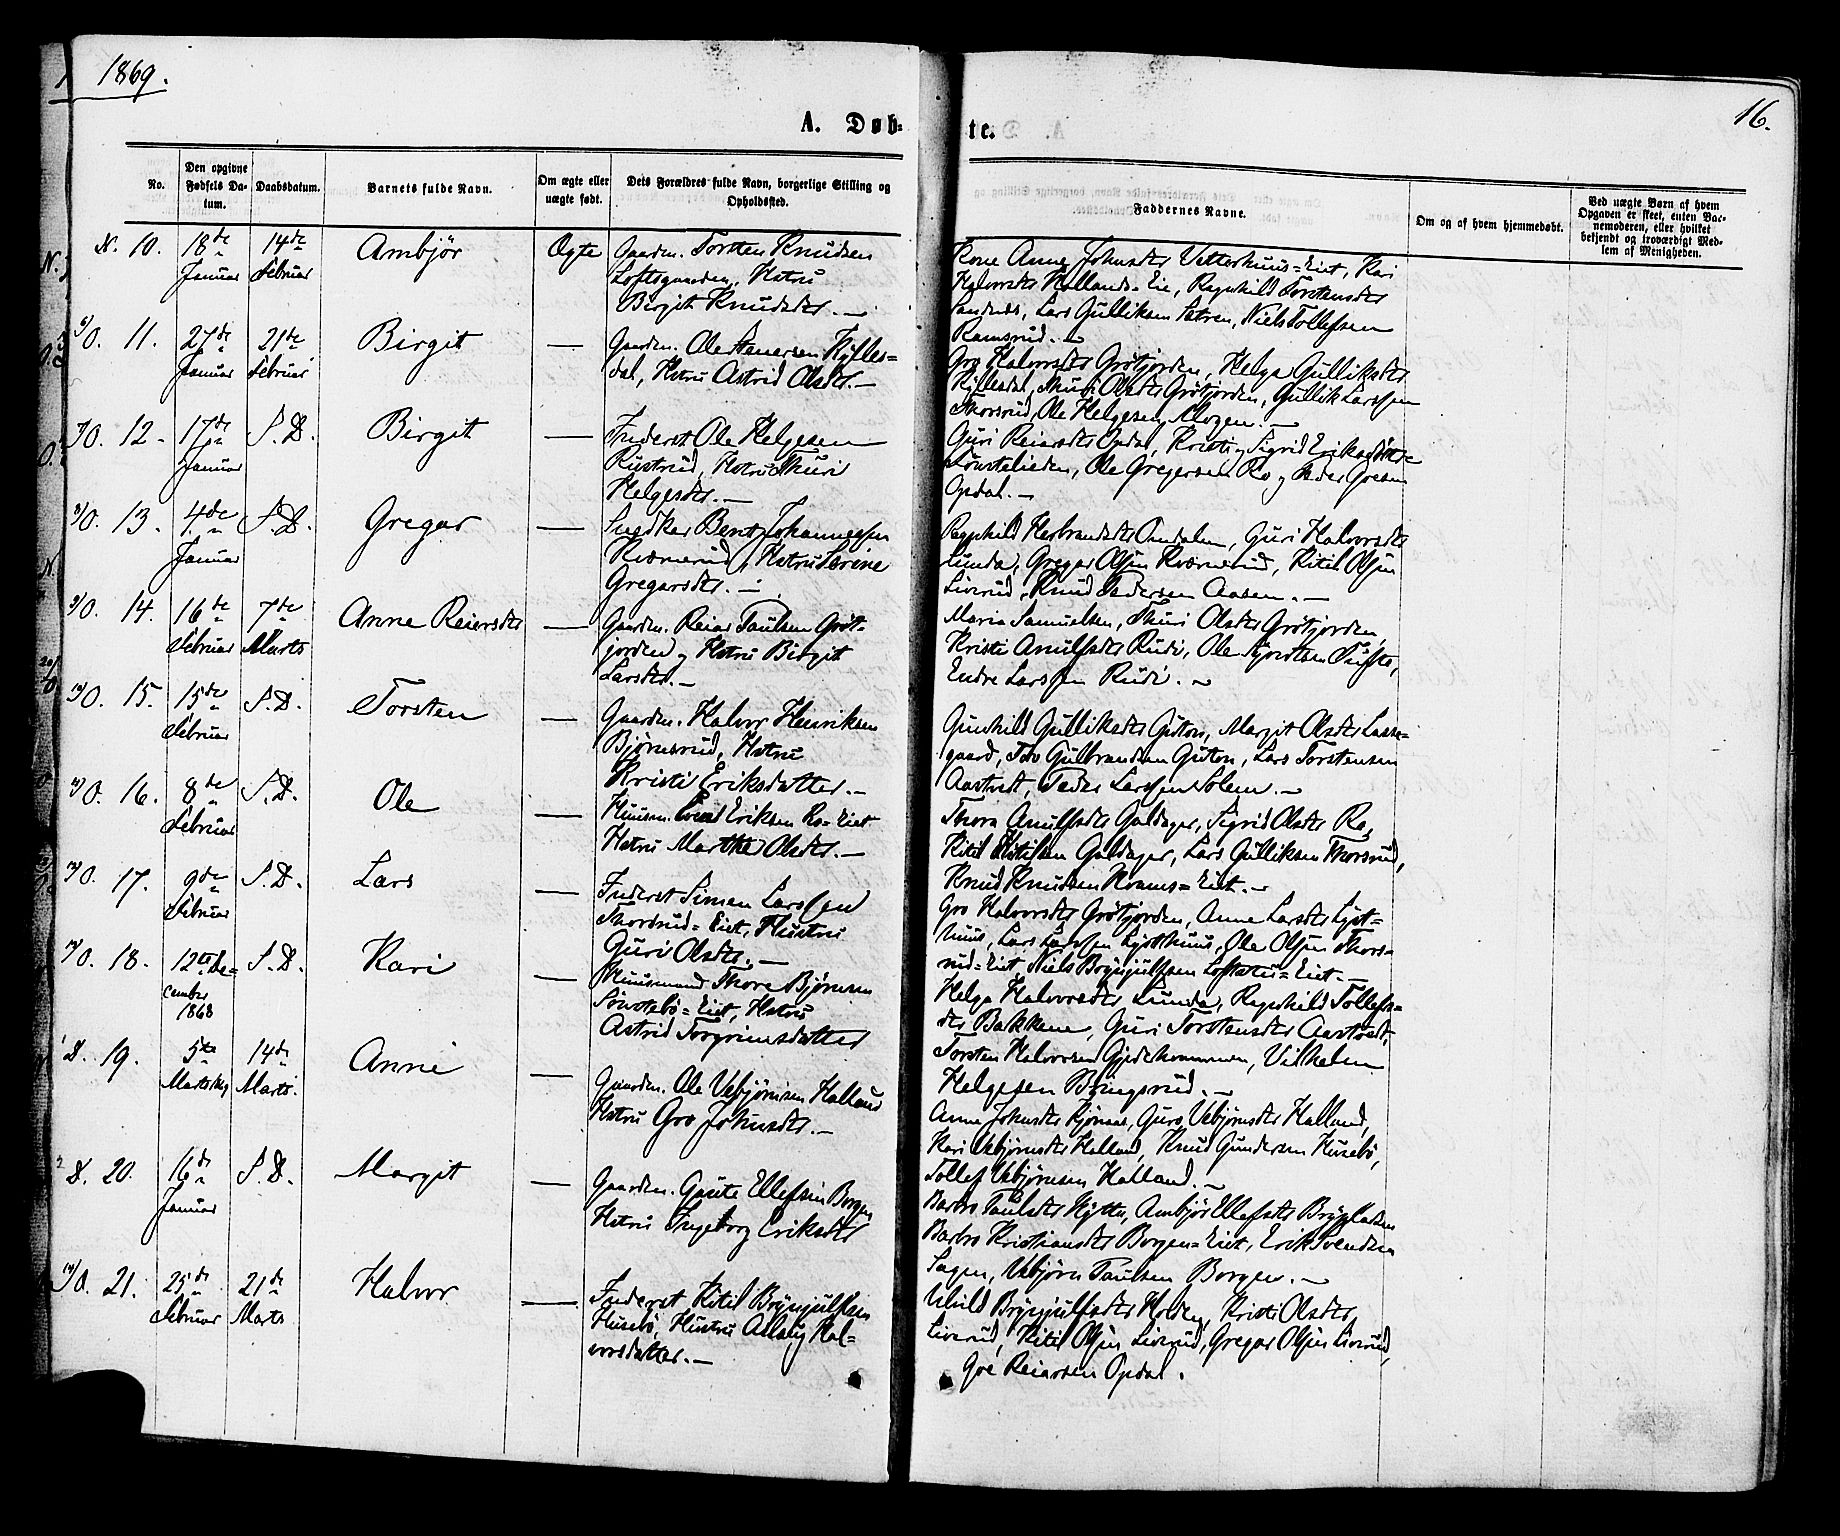 1869.
16.
A. Døb-
te.
No.
Den opgivne Fødsels Da-tum.
Daabsdatum.
Barnets fulde Navn.
Om ægte eller uægte født.
Dets Forældres fulde Navn, borgerlige Stilling og Opholdssted.
Faddernes Navne.
Om og af hvem hjemmedøbt.
Ved uægte Børn af hvem Opgaven er skeet, enten Bar-nemoderen, eller hvilket bekjendt og troværdigt Med-lem af Menigheden.
N. 10. 18de Januar 14de Februar Ambjör Ægte Gaardm. Torsten Knudsen
Loftsgaarden, Hstru
Birgit Knudsdtr. —
Kone Anne Johnsdtr Vetterhuus=Eiet, Kari
Halvorsdtr Hallands=Eie, Ragnhild Torstensdtr
Sandnes, Lars Gulliksen Sætren, Niels Tollefsen
Ramsrud. —
O. 11. 27de Januar 21de Februar Birgit — Gaardm. Ole Steuersen Kjfles=
dal, Hstru Astrid Olsdtr. —
Gro Halvorsdtr Grötjorden, Helga Gulliksdtr
Thuri Olsdtr Grötjorden, Gullik Larssen
Thorsrud, Ole Helgesen
O. 12. 17de Januar S. D. Birgit — Inderst Ole Helgesen
Rustrud, Hstru Thuri
Helgesdtr. —
Guri Reiersdtr Opdal, Kristi og Sigrid Eriksdöttre
Lönstelieden, Ole Gregersen Ro og Peder Goesen
Opdal. —
O. 13. 4de Januar S. D. Gregar — Snedker Bent Johannessen
Kværnerud, Hstru Serine
Gregarsdtr. —
Ragnhild Herbrandsdtr Guri Halvorsdtr
Lunde, Gregar Olsen Kværnerud, Kitil Olsen
Liverud, Knud Pedersen Aasen. —
O. 14. 16de Februar 7de Marts Anne Reiersdtr — Gaardm. Reiar Paulsen Gröt-
jorden og Hstru Birgit
Larsdtr. —
Maria Samuelsen, Thuri Olsdtr Grötjorden,
Kristi Arnulfsdtr Rudi, Ole Tufte,
Endre Larssen Rudi. —
O. 15. 15de Februar S. D. Torsten — Gaardm. Halvor Henriksen
Björnsrud, Hstru
Kristi Eriksdatter. —
Gunhild Gulliksdtr Guton, Margit Olsdtr Lasse-
gaard, Tov Gulbrandsen Guton, Lars Torstensen
Aastvedt, Peder Larssen Solem. —
O. 16. 8de Februar S. D. Ole — Huusm. Eriksen Ro=Eiet
Hstru Marthe Olsdtr. —
Thora Arnulfsdtr Galdager, Sigrid Olsdtr Ro,
Kitil Kitilsen Galdager, Lars Gulliksen Thorsrud,
Knud Knudsen Kvams=Eiet. —
O. 17. 9de Februar S. D. Lars — Inderst Simen Larssen
Thorsrud=Eiet, Hustru
Guri Olsdtr. —
Gro Halvorsdtr Grötjorden, Anne Larsdtr Lyst-
huus, Lars Larssen Lysthuus, Ole Olsen Thors-
rud=Eiet, Niels Brynjulfsen Loftstu=Eiet. —
O. 18. 12te De=cember 1868 S. D. Kari — Huusmand Thore Björnsen
Sönstebö=Eiet, Hstru
Astrid Torgrimsdatter
Helga Halvorsdtr Lunde, Ragnhild Tollefs=
dtr Bakkene, Guri Torstensdtr Aastvedt,
Torsten Halvorsen Gjedekommen, Vilhelm
Helgesen Bringsrud. —
D. 19. 5te Marts 14de Marts. Anne — Gaardm. Ole Vebjörnsen Halland
Hstru Gro Johnsdtr. —
Anne Johnsdtr Kjönaas, Guro Vebjörnsdtr Halland,
Kari Vebjörnsdtr Halland, Knud Gundersen Husebö,
Tollef Vebjörnsen Halland. —
D. 20. 16de Januar S. D. Margit — Gaardm. Gaute Ellefsen Borgen
Hstru Ingeborg Eriksdtr
Barbro Paulsdtr Hytta, Ambjör Ellefsdtr
Barbro Kristiansdtr Borgen=Eiet, Erik Svendsen
Sagen, Vebjörn Paulsen Borgen. —
O. 21. 25de Februar 21de Marts Halvor — Inderst Kitil Brynjulfsen
Husebö, Hustru Aslaug Hal=
vorsdatter. —
Uhild Brynjulfsdtr Holden, Kristi Olsdtr
Liverud, Kitil Olsen Liverud, Gregar Olsen Liverud,
Goe Reiarsen Opdal.